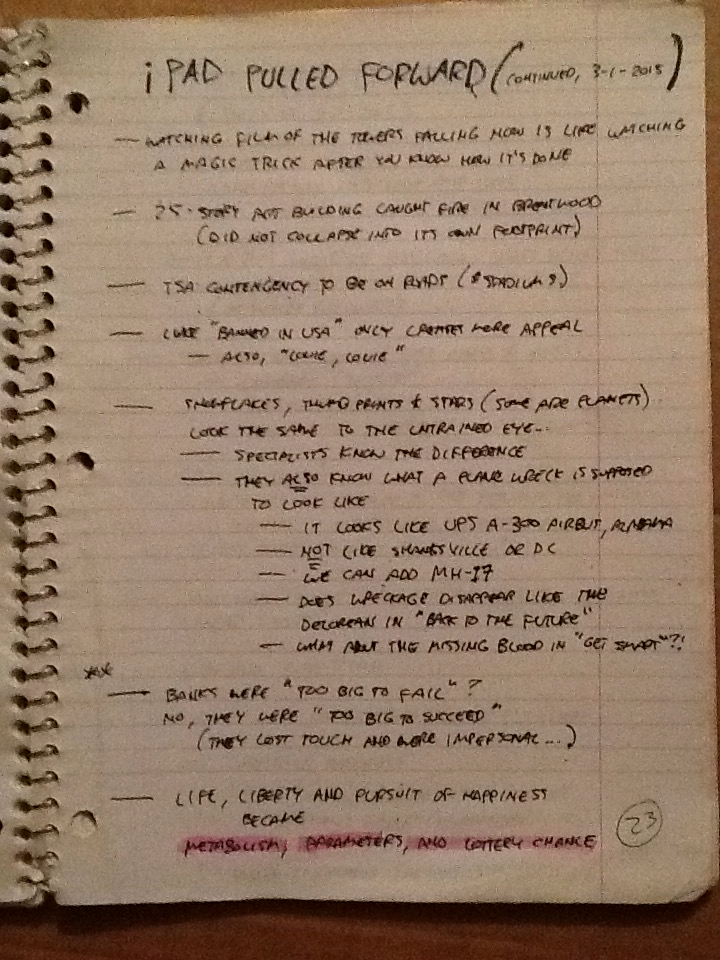 iPAD PULLED FORWARD (CONTINUED, 3-1-2015)
— WATCHING FILM OF THE TOWERS FALLING NOW IS LIKE WATCHING
A MAGIC TRICK AFTER YOU KNOW HOW IT'S DONE
— 25-STORY APT BUILDING CAUGHT FIRE IN BRENTWOOD
(DID NOT COLLAPSE INTO ITS OWN FOOTPRINT)
— TSA CONTENGENCY TO BE ON ROADS (& STADIUMS)
— LIKE "BANNED IN USA" ONLY CREATES MORE APPEAL
— ALSO, "LOUIE, LOUIE"
— SNOWFLAKES, THUMB PRINTS & STARS (SOME ARE PLANETS)
LOOK THE SAME TO THE UNTRAINED EYE...
— SPECIALISTS KNOW THE DIFFERENCE
— THEY ALSO KNOW WHAT A PLANE WRECK IS SUPPOSED
TO LOOK LIKE
— IT LOOKS LIKE UPS A-300 AIRBUS, ALABAMA
— NOT LIKE SHANKSVILLE OR DC
— WE CAN ADD MH-17
— DOES WRECKAGE DISAPPEAR LIKE THE
DELOREAN IN "BACK TO THE FUTURE"
— WHAT ABOUT THE MISSING BLOOD IN "GET SMART"?!
***
— BANKS WERE "TOO BIG TO FAIL"?
NO, THEY WERE "TOO BIG TO SUCCEED"
(THEY LOST TOUCH AND WERE IMPERSONAL...)
— LIFE, LIBERTY AND PURSUIT OF HAPPINESS
BECAME
METABOLISM, PARAMETERS, AND LOTTERY CHANCE
23